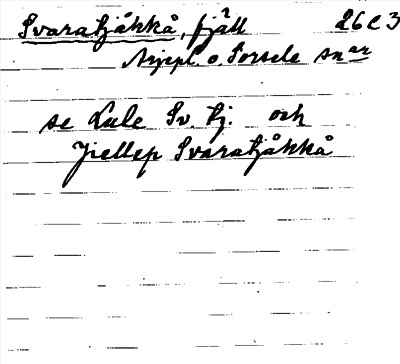 Svaratjåkkå, fjäll 26C3
Arjepl. o. Sorsele snar
se Lule Sv. tj. och
Jiellep Svaratjåkkå